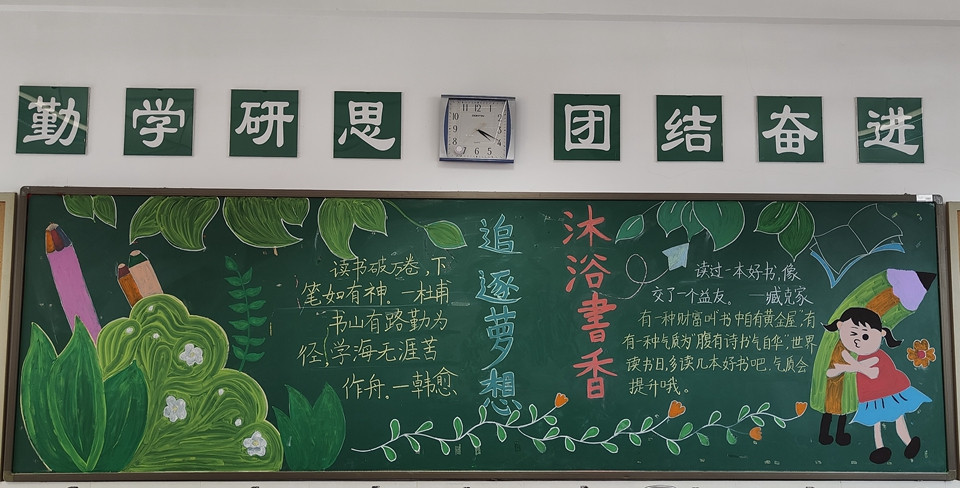 勤学研思 团结奋进
读书破万卷,下
笔如有神。—杜甫
书山有路勤为
径,学海无涯苦
作舟。—韩愈
追逐萝想
沐浴書香
读过一本好书,像
交了一个益友。 —臧克家
有一种财富叫"书中自有黄金屋",有
有一种气质为"腹有诗书气自华",世界
读书日,多读几本好书吧,气质会
提升哦。